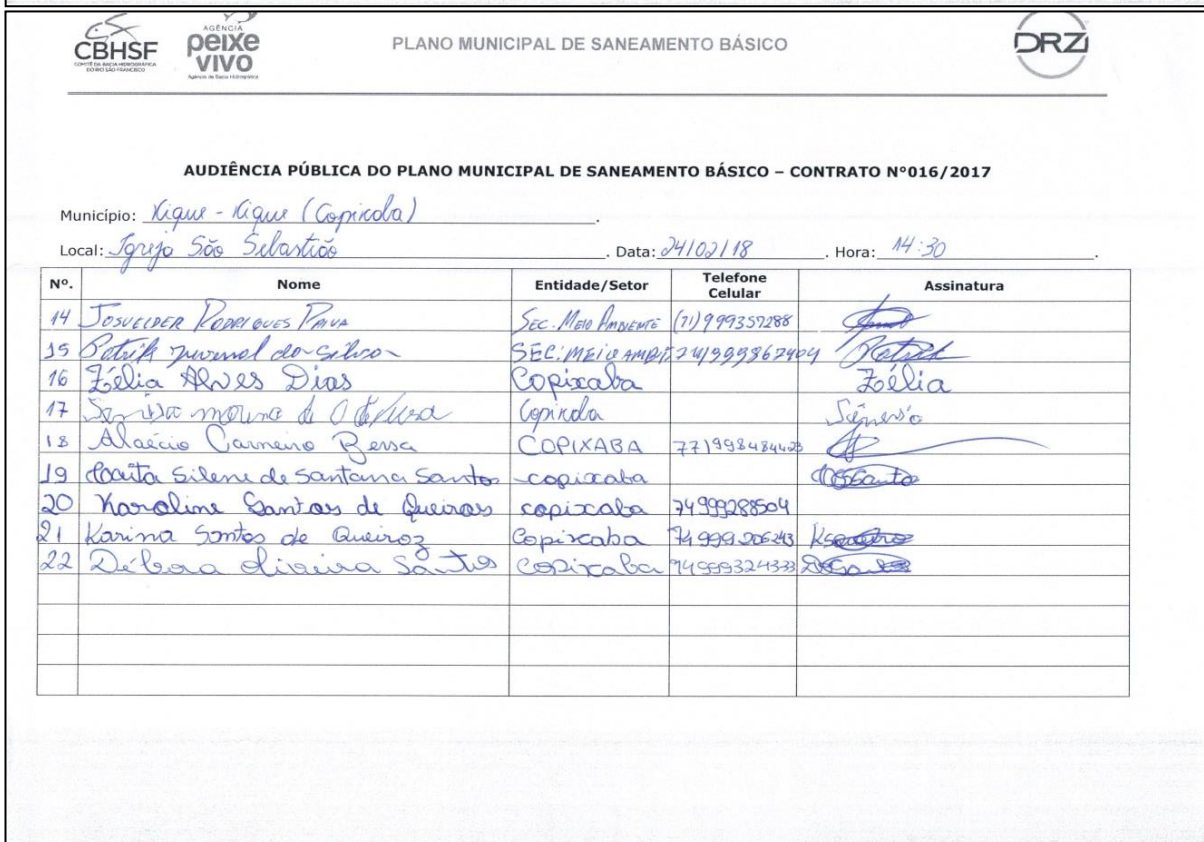 CBHSF
COMITÊ DA BACIA HIDROGRÁFICA
DO RIO SÃO FRANCISCO
AGÊNCIA
peixe
VIVO
Agência de Bacia Hidrográfica
PLANO MUNICIPAL DE SANEAMENTO BÁSICO
DRZ
AUDIÊNCIA PÚBLICA DO PLANO MUNICIPAL DE SANEAMENTO BÁSICO – CONTRATO Nº016/2017
Município: Xique - Xique (Copixaba).
Local: Igreja São Sebastião. Data: 24/02/18. Hora: 14:30.
Nº. Nome Entidade/Setor Telefone Celular Assinatura
14 Josuelder Rodrigues Paiva Sec. Meio Ambiente (71)999357288
15 Patrik Juvenal da Silva SEC. MEIO AMBI. 74)999867404 Patrik
16 Zélia Alves Dias Copixaba Zélia
17 Copixaba
18 Alaécio Carneiro Bessa COPIXABA 77)998484423
19 Silene de Santana Santos copixaba
20 Karoline Santos de Queiros copixaba 74999288504
21 Karina Santos de Queiroz Copixaba 74.999.206243
22 Débora Oliveira Santos Copixaba 74999324333